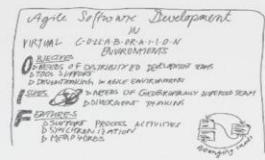 Agile Software Development
IN
VIRTUAL COLLABORATION
ENVIRONMENTS
OBJECTIVES
NEEDS OF DISTRIBUTED DEVELOPMENT TEAMS
TOOL SUPPORT
IN AGILE ENVIRONMENTS
ISSUES
NEEDS OF GEOGRAPHICALLY DISPERSED TEAM
DIVERGENT THINKING
FEATURES
SUPPORT PROCESS ACTIVITIES
SYNCHRONIZATION
METAPHORS